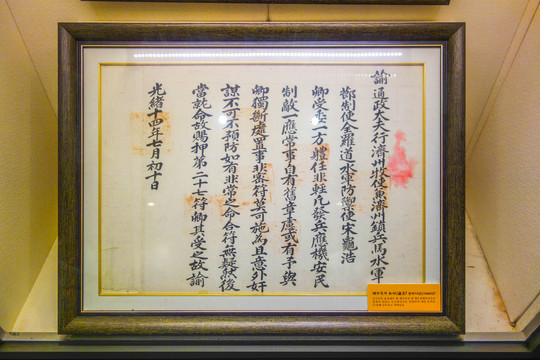 諭通政大夫行濟州牧使兼濟州鎮兵馬水軍
節制使全羅道水軍防禦使宋龜浩
卿受委一方體任非輕凡發兵應機安民
制敵一應常事自有舊章慮或有予與
卿獨斷處置事非密符莫可施為且意外奸
謀不可不預防如有非常之命合符無疑然後
當就命故賜押第二十七符卿其受之故諭
光緒十四年七月初十日